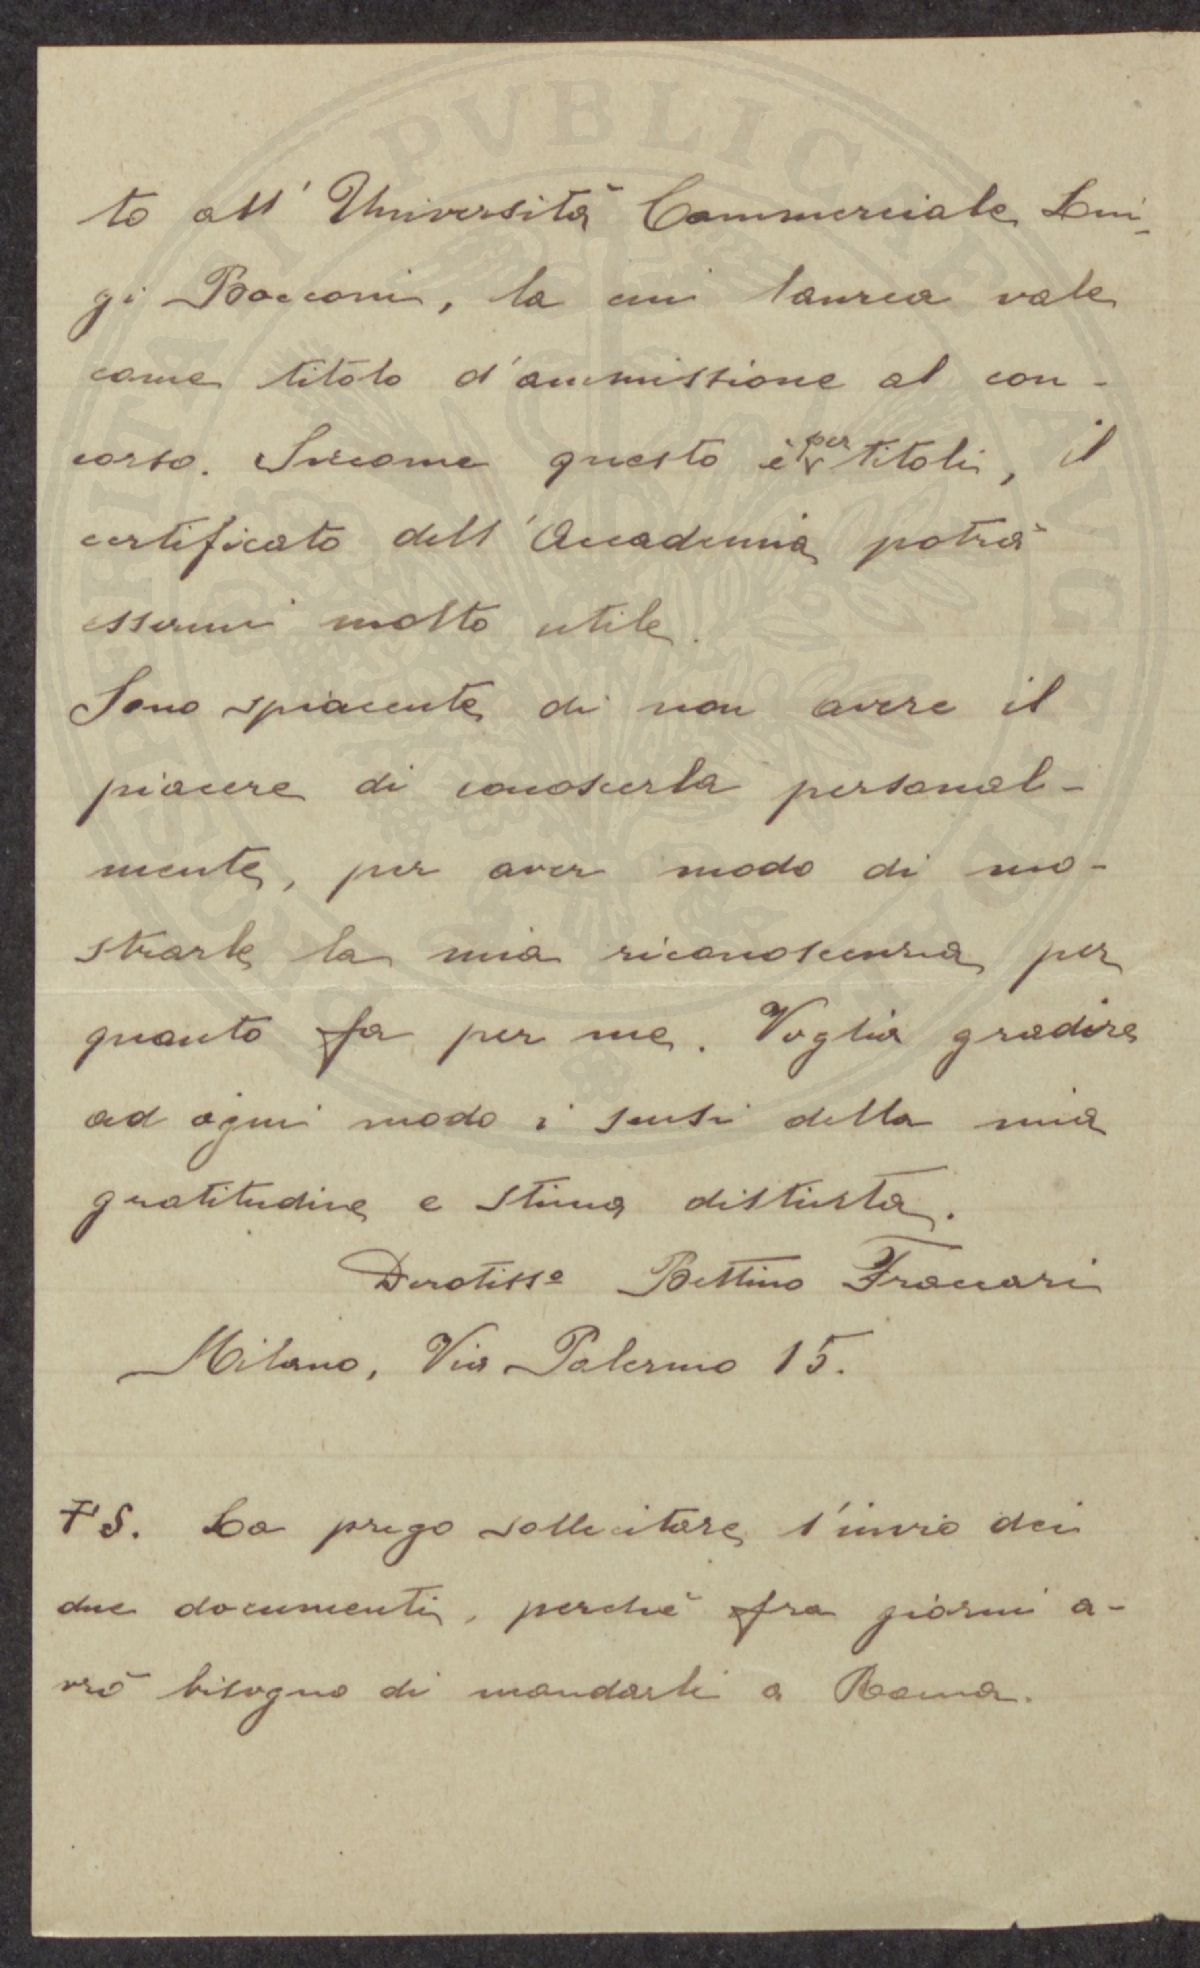 to all' Università Commerciale Lui-
gi Bocconi, la cui laurea vale
come titolo d'ammissione al con-
corso. Siccome questo è per titoli, il
certificato dell'Accademia potrà
essermi molto utile.
Sono spiacente di non avere il
piacere di conoscerla personal-
mente, per aver modo di mo-
strarle la mia riconoscenza per
quanto fa per me. Voglia gradire
ad ogni modo i sensi della mia
gratitudine e stima distinta.
Devotisso Bettino Fraccari
Milano, Via Palermo 15.
PS. La prego sollecitare l'invio dei
due documenti, perchè fra giorni a-
vrò bisogno di mandarli a Roma.